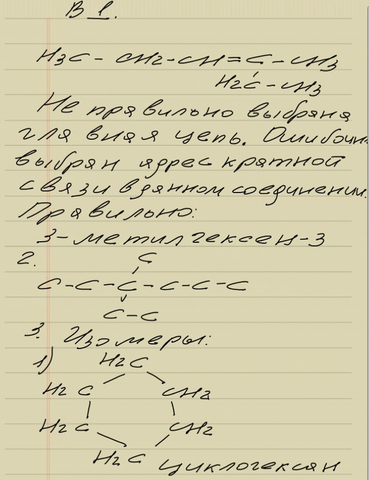 В 1.
H₃C - CH₂-CH=C-CH₃
H₂C-CH₃
Не правильно выбрана
главная цепь. Ошибочн
выбран адрес кратной
связи в данном соединении.
Правильно:
3-метилгексен-3
2.
C
C-C-C-C-C-C
C-C
3. Изомеры:
1) H₂C
H₂C CH₂
H₂C CH₂
H₂C циклогексан